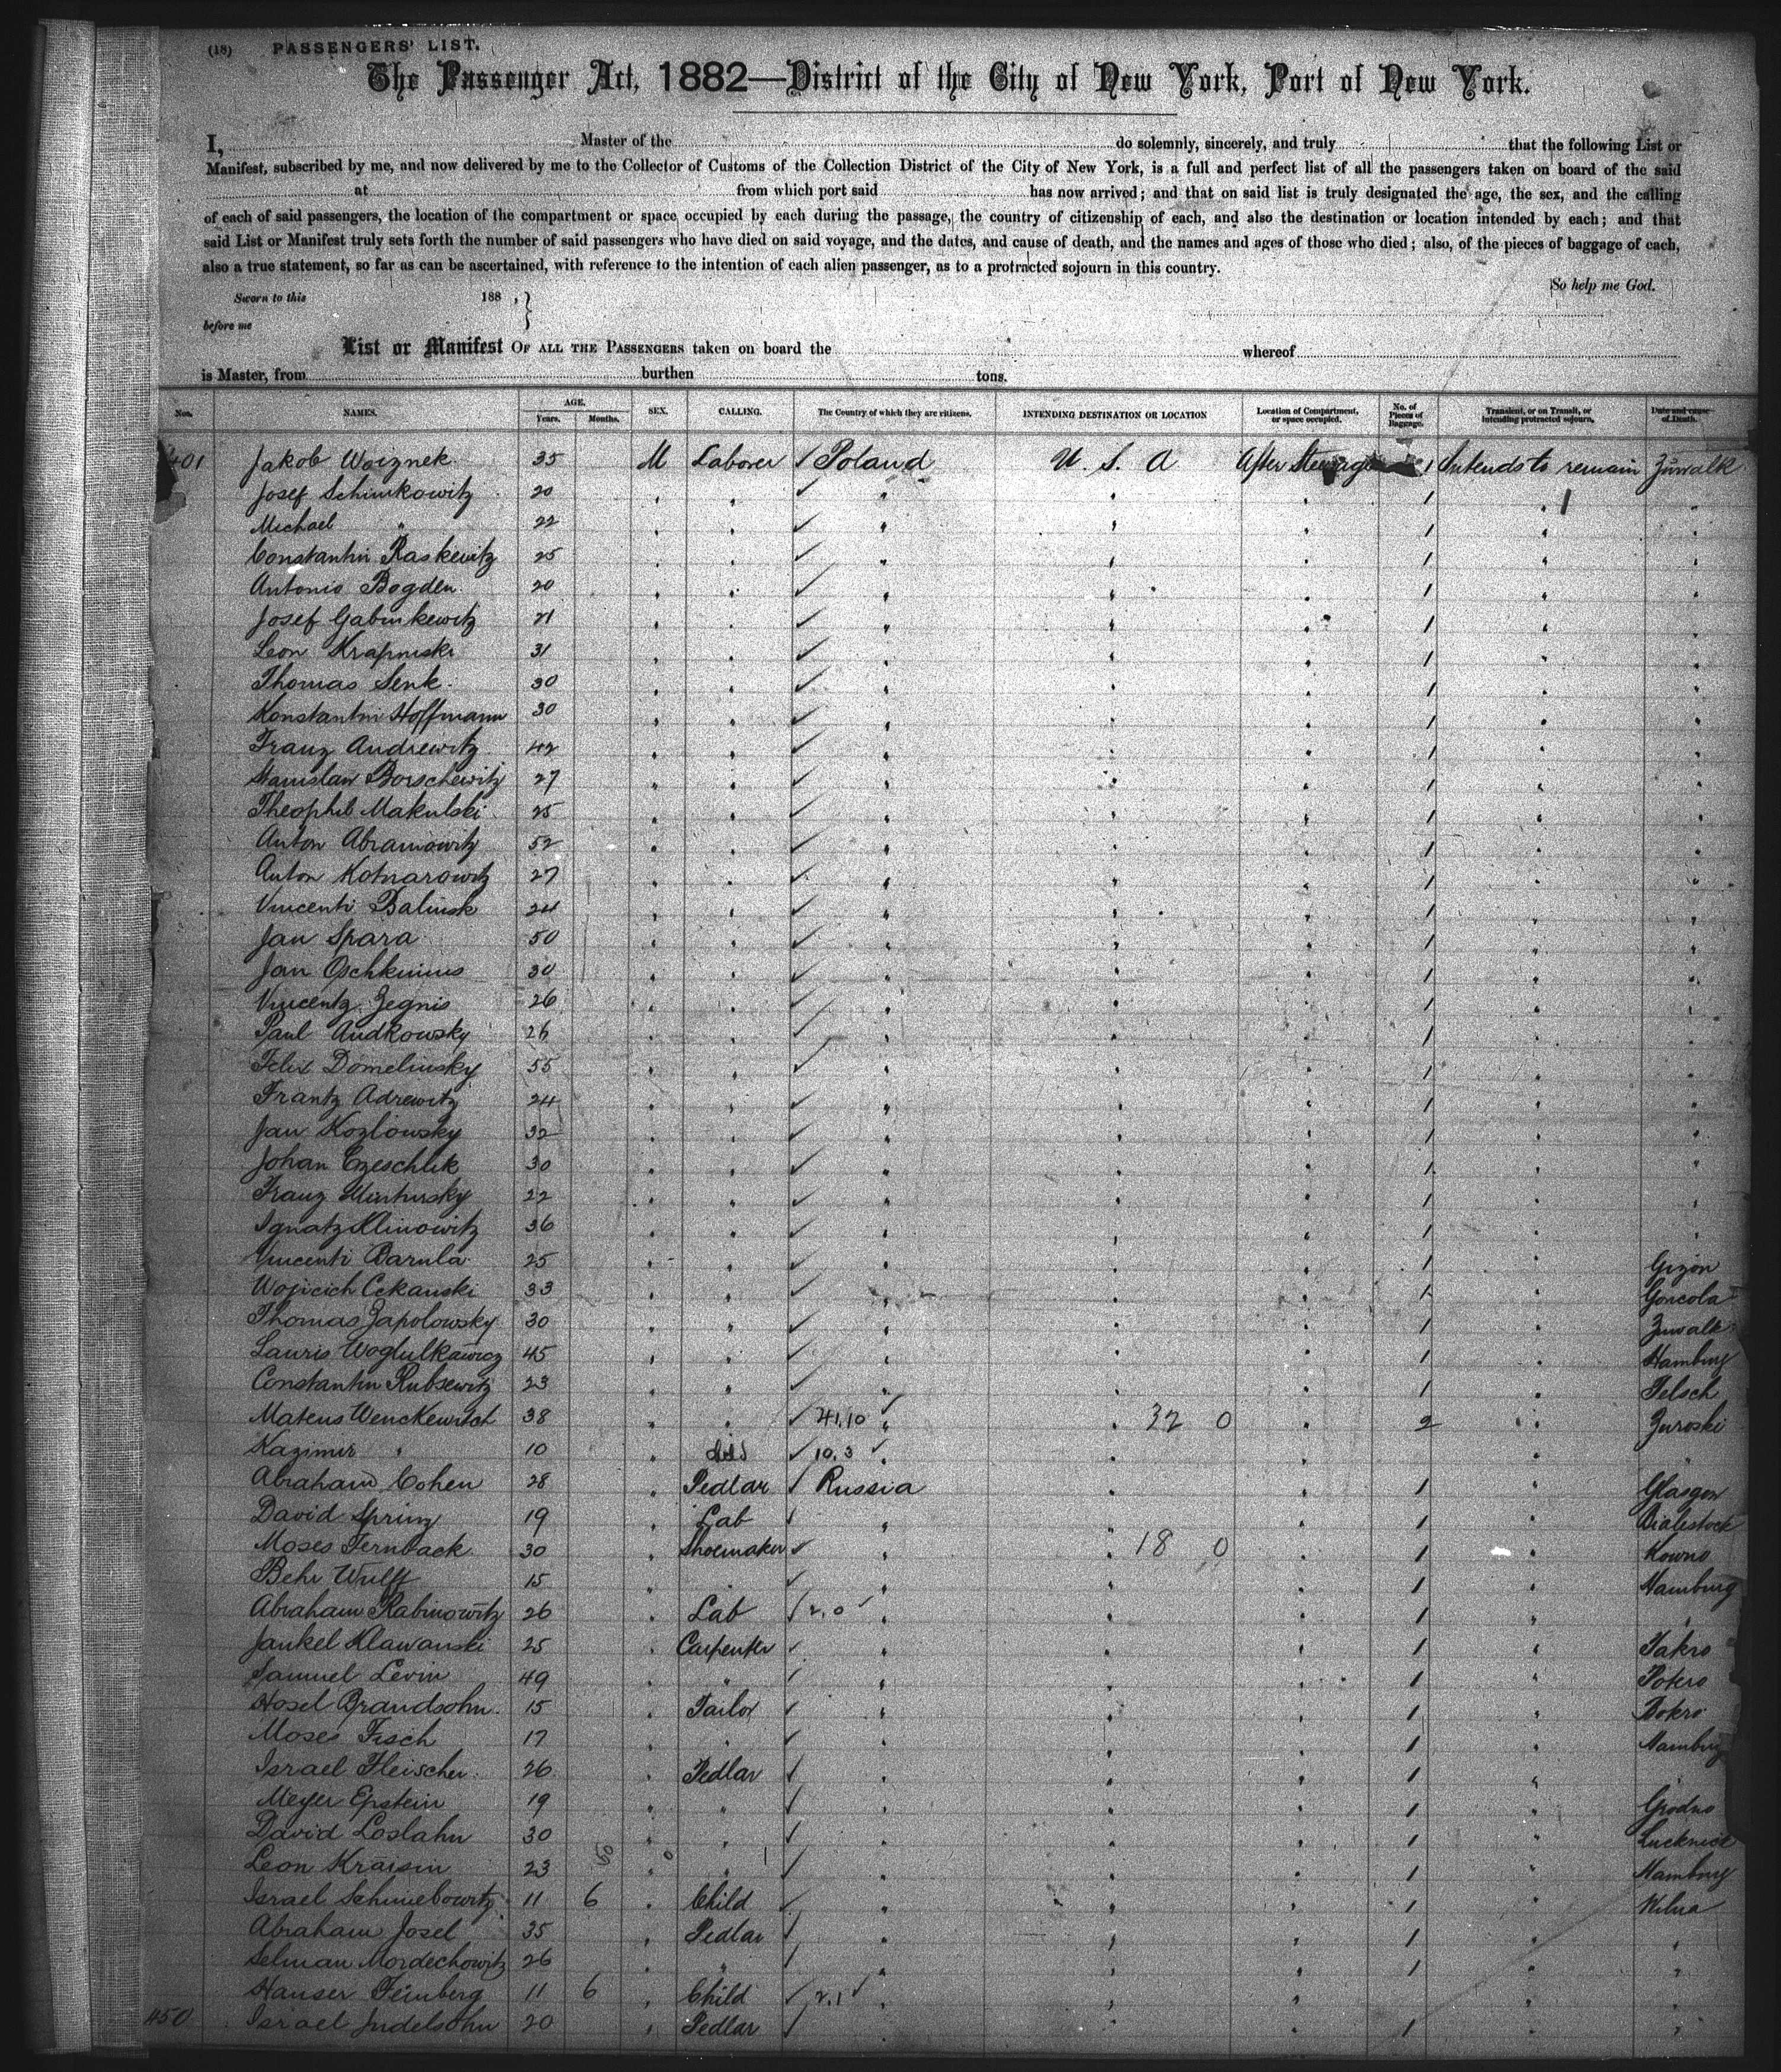 (18) PASSENGERS' LIST.
The Passenger Act, 1882—District of the City of New York, Port of New York.
I, Master of the do solemnly, sincerely, and truly that the following List or
Manifest, subscribed by me, and now delivered by me to the Collector of Customs of the Collection District of the City of New York, is a full and perfect list of all the passengers taken on board of the said
at from which port said has now arrived; and that on said list is truly designated the age, the sex, and the calling
of each of said passengers, the location of the compartment or space occupied by each during the passage, the country of citizenship of each, and also the destination or location intended by each; and that
said List or Manifest truly sets forth the number of said passengers who have died on said voyage, and the dates, and cause of death, and the names and ages of those who died; also, of the pieces of baggage of each,
also a true statement, so far as can be ascertained, with reference to the intention of each alien passenger, as to a protracted sojourn in this country.
So help me God.
Sworn to this 188 , }
before me
List or Manifest OF ALL THE PASSENGERS taken on board the whereof
is Master, from burthen tons.
Nos. NAMES. AGE. Years. Months. SEX. CALLING. The Country of which they are citizens. INTENDING DESTINATION OR LOCATION Location of Compartment, or space occupied. No. of Pieces of Baggage. Transient, or on Transit, or intending protracted sojourn. Date and cause of Death.
401 Jakob Woiznek 35 M Laborer ✓ Poland U. S. A After Steerage 1 Intends to remain Zuwalk
Josef Schimkowitz 20 " " ✓ " " " 1 " "
Michael " 22 " " ✓ " " " 1 " "
Constantin Raskewitz 25 " " ✓ " " " 1 " "
Antonio Bogden 20 " " ✓ " " " 1 " "
Josef Gabinkewitz 21 " " ✓ " " " 1 " "
Leon Krapniski 31 " " ✓ " " " 1 " "
Thomas Senk 30 " " ✓ " " " 1 " "
Konstantin Hoffmann 30 " " ✓ " " " 1 " "
Franz Andrewitz 42 " " ✓ " " " 1 " "
Stanislaw Borschewitz 27 " " ✓ " " " 1 " "
Theophil Makulski 25 " " ✓ " " " 1 " "
Anton Abramowitz 52 " " ✓ " " " 1 " "
Anton Kotnarowitz 27 " " ✓ " " " 1 " "
Vincenti Balinsk 24 " " ✓ " " " 1 " "
Jan Spara 50 " " ✓ " " " 1 " "
Jan Oschkinius 30 " " ✓ " " " 1 " "
Vincentz Zegnis 26 " " ✓ " " " 1 " "
Paul Audkowsky 26 " " ✓ " " " 1 " "
Felix Domelinsky 55 " " ✓ " " " 1 " "
Frantz Adrewitz 24 " " ✓ " " " 1 " "
Jan Kozlowsky 32 " " ✓ " " " 1 " "
Johan Czeschlik 30 " " ✓ " " " 1 " "
Franz 22 " " ✓ " " " 1 " "
Ignatz Klinowitz 36 " " ✓ " " " 1 " "
Vincenti Barula 25 " " ✓ " " " 1 " Gizon
Wojicich Cekanski 33 " " ✓ " " " 1 " Goncola
Thomas Zapolowsky 30 " " ✓ " " " 1 " Zuwalk
Lauris 45 " " ✓ " " " 1 " Hamburg
Constantin Rubsewitz 23 " " ✓ " " " 1 " Telsch
Mateus Wenckewitch 38 " " ✓ 41.10 ✓ " " 32 0 " 2 " Zuroski
Kazimir " 10 " ✓ 10.3 ✓ " " " " "
Abraham Cohen 28 " Pedlar ✓ Russia " " 1 " Glasgow
David Sprinz 19 " Lab ✓ " " " 1 " Bialestock
Moses Fernback 30 " Shoemaker ✓ " " 18 0 " 1 " Kowno
Behr Wulff 15 " " ✓ " " " 1 " Hamburg
Abraham Rabinowitz 26 " Lab ✓ 2.0 ✓ " " " 1 " "
Jankel Klawanski 25 " Carpenter ✓ " " " 1 " Takro
Samuel Levin 49 " " ✓ " " " 1 " Pokro
Hosel Brandsohn 15 " Tailor ✓ " " " 1 " Bokro
Moses Fisch 17 " " ✓ " " " 1 " Hamburg
Israel Fleischer 26 " Pedlar ✓ " " " 1 " "
Meyer Epstein 19 " " ✓ " " " 1 " Grodno
David Loslahn 30 " " ✓ " " " 1 "
Leon Kraisin 23 50 " 0 " ✓ " " " 1 " Hamburg
Israel Schmebowitz 11 6 " Child ✓ " " " 1 " Wilna
Abraham Josel 35 " Pedlar ✓ " " " 1 " "
Selman Mordechowitz 26 " " ✓ " " " 1 " "
Hanser Feinberg 11 6 " Child ✓ 2.1 ✓ " " " " "
450 Israel Judelsohn 20 " Pedlar ✓ " " " 1 " "